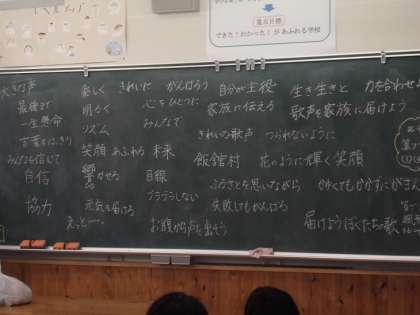 重点目標
できた!わかった!があふれる学校
大きな声
最後まで
一生懸命
言葉をはっきり
みんなを信じて
自信
協力
楽しく
明るく
リズム
笑顔あふれる
響かせる
元気を届ける
えっとー。
きれいに
心をひとつに
みんなで
未来
目線
ブラブラしない
お腹から声を出そう
がんばろう
自分が主役
家族に伝える
きれいな歌声
つられないように
飯舘村
花のように輝く笑顔
ふるさとを思いながら
失敗してもがんばる
生き生きと
力を合わせ
歌声を家族に届けよう
かれくてもかずすに
届けようぼくたちの歌